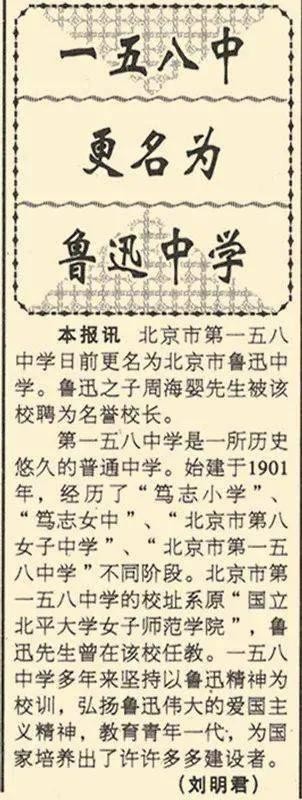 一五八中
更名为
鲁迅中学
本报讯 北京市第一五八
中学日前更名为北京市鲁迅中
学。鲁迅之子周海婴先生被该
校聘为名誉校长。
第一五八中学是一所历史
悠久的普通中学。始建于1901
年，经历了“笃志小学”、
“笃志女中”、“北京市第八
女子中学”、“北京市第一五
八中学”不同阶段。北京市第
一五八中学的校址系原“国立
北平大学女子师范学院”，鲁
迅先生曾在该校任教。一五八
中学多年来坚持以鲁迅精神为
校训，弘扬鲁迅伟大的爱国主
义精神，教育青年一代，为国
家培养出了许许多多建设者。
（刘明君）